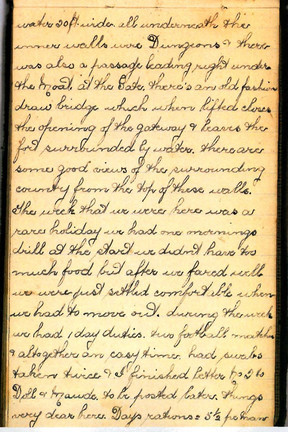 water 20ft wide. all underneath the
inner walls were Dungeons & there
was also a passage leading right under
the Moat at the Gate. there's an old fashion
draw bridge which when lifted closes
the opening of the gateway & leaves the
fort surrounded by water. there are
some good views of the surrounding
country from the top of these walls.
The week that we were here was a
rare holiday we had one mornings
drill at the start we didn't have too
much food but after we fared well
we were just settled comfortable when
we had to move out. during the week
we had 1 day duties. two football matches
& altogether an easy time. had pucks
taken twice & I finished letter No 2 to
Doll & Maude. to be posted later. things
very dear here. Days rations = 5½ per man